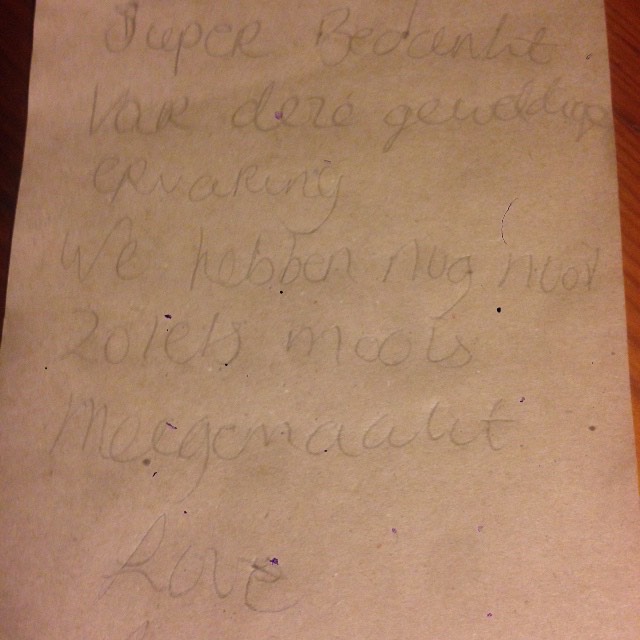 Super Bedankt
Voor deze geweldige
ervaring
We hebben nog nooit
Zoiets moois
Meegemaakt
Love